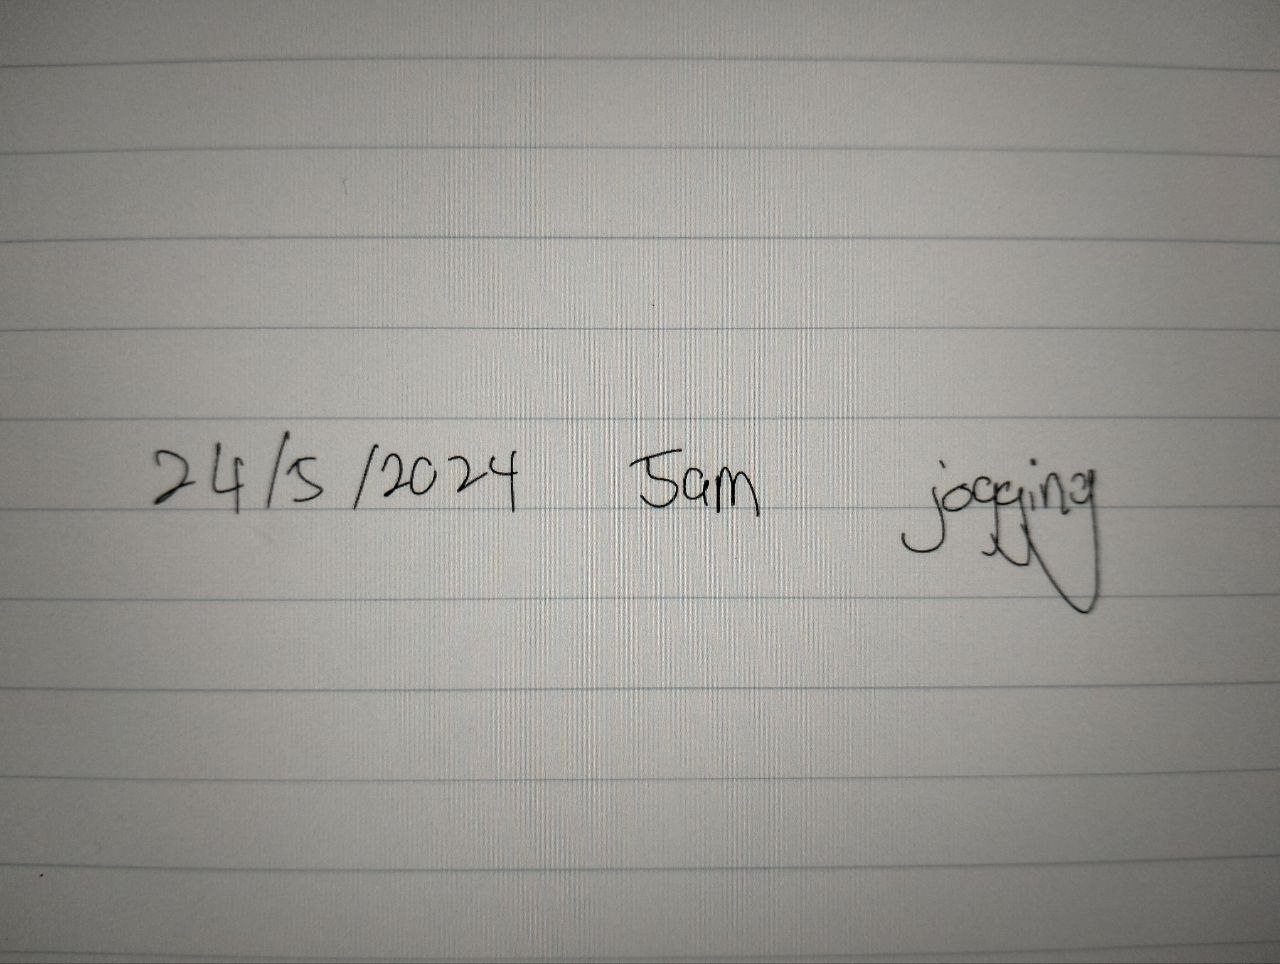 24/5/2024 5am jogging